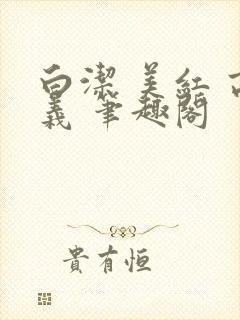 白潔 美紅 
義 筆趣閣
貴有恒